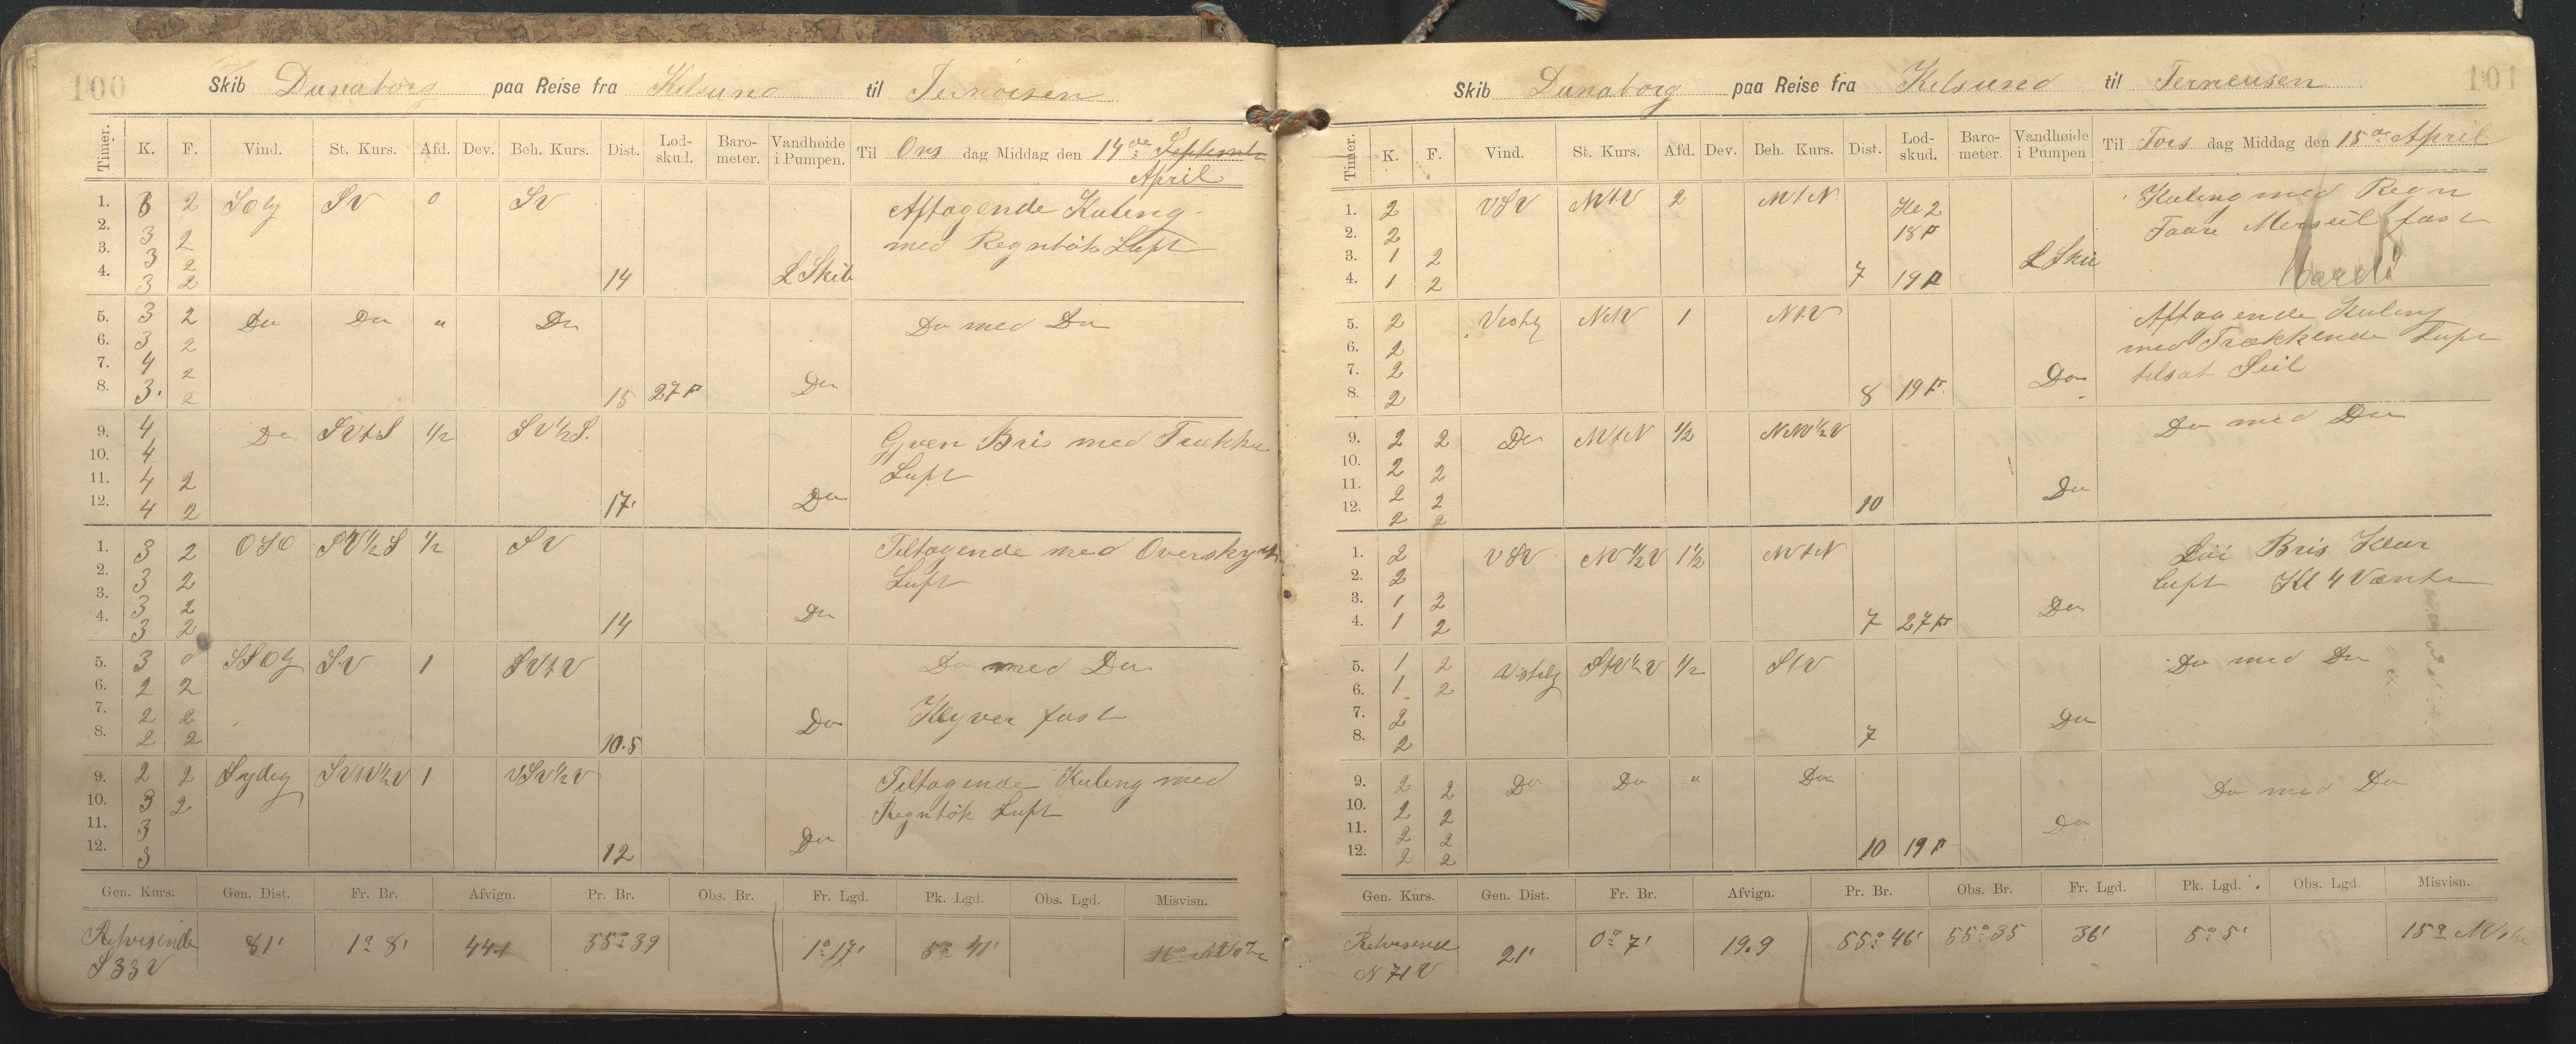 100
Skib Dunaborg paa Reise fra Kilsund til Ternoisen
Timer. K. F. Vind. St. Kurs. Afd. Dev. Beh. Kurs. Dist. Lod-skud. Baro-meter. Vandhøide i Pumpen. Til Ons dag Middag den 14de September
April
1. 3 2 SOlg SV 0 SV Aftagende Kuling
2. 3 2 med Regntök Luft
3. 3 2
4. 3 2 14 L Skib
5. 3 2 Do Do " Do Do med Do
6. 3 2
7. 4 2
8. 3 2 15 27 F Do
9. 4 Do SVtS 1/2 SV 1/2 S. Gjven Bris med Trække
10. 4 Luft
11. 4 2
12. 4 2 17 Do
1. 3 2 OSO SV 1/2 S 1/2 SV Tiltagende med Overskyet
2. 3 2 Luft
3. 3 2
4. 3 2 14 Do
5. 3 0 SSOlg SV 1 SVtV Do med Do
6. 2 2
7. 2 2 Klyver fast
8. 2 2 10.5 Do
9. 2 2 Sydlig SVtV 1/2 V 1 VSV 1/2 V Tiltagende Kuling med
10. 3 2 Regntök Luft
11. 3
12. 3 12 Do
Gen. Kurs. Gen. Dist. Fr. Br. Afvign. Pr. Br. Obs. Br. Fr. Lgd. Pk. Lgd. Obs. Lgd. Misvisn.
Retvisende 81' 1° 8' 44.1 55° 39 1° 17' 5° 41' 16°
S 33 V
101
Skib Dunaborg paa Reise fra Kilsund til Terneusen
Timer. K. F. Vind. St. Kurs. Afd. Dev. Beh. Kurs. Dist. Lod-skud. Baro-meter. Vandhøide i Pumpen Til Tors dag Middag den 15de April
1. 2 VSV NVtV 2 NVtN Kl 2 Kuling med Regn
2. 2 18 F Taare Merseil fast
3. 1 2
4. 1 2 7 19 F L Skib
5. 2 Vestlg NtV 1 NtV Aftagende Kuling
6. 2 med Trækkende Luft
7. 2 tilsat Seil
8. 2 8 19 F Do
9. 2 2 Do NVtN 1/2 NNV 1/2 V Do med Do
10. 2 2
11. 2 2
12. 2 2 10 Do
1. 2 VSV NV 1/2 V 1 1/2 NVtN Löi Bris Klar
2. 2 luft Kl 4 Vænte
3. 1 2
4. 1 2 7 27 F Do
5. 1 2 Vestelg StV 1/2 V 1/2 StV Do med Do
6. 1 2
7. 2
8. 2 7 Do
9. 2 2 Do Do " Do Do med Do
10. 2 2
11. 2 2 Do
12. 2 2 10 19 F
Gen. Kurs. Gen. Dist. Fr. Br. Afvign. Pr. Br. Obs. Br. Fr. Lgd. Pk. Lgd. Obs. Lgd. Misvisn.
Retvisende 21' 0° 7' 19.9 55° 46' 55° 35 36' 5° 5' 15°
N 71 V